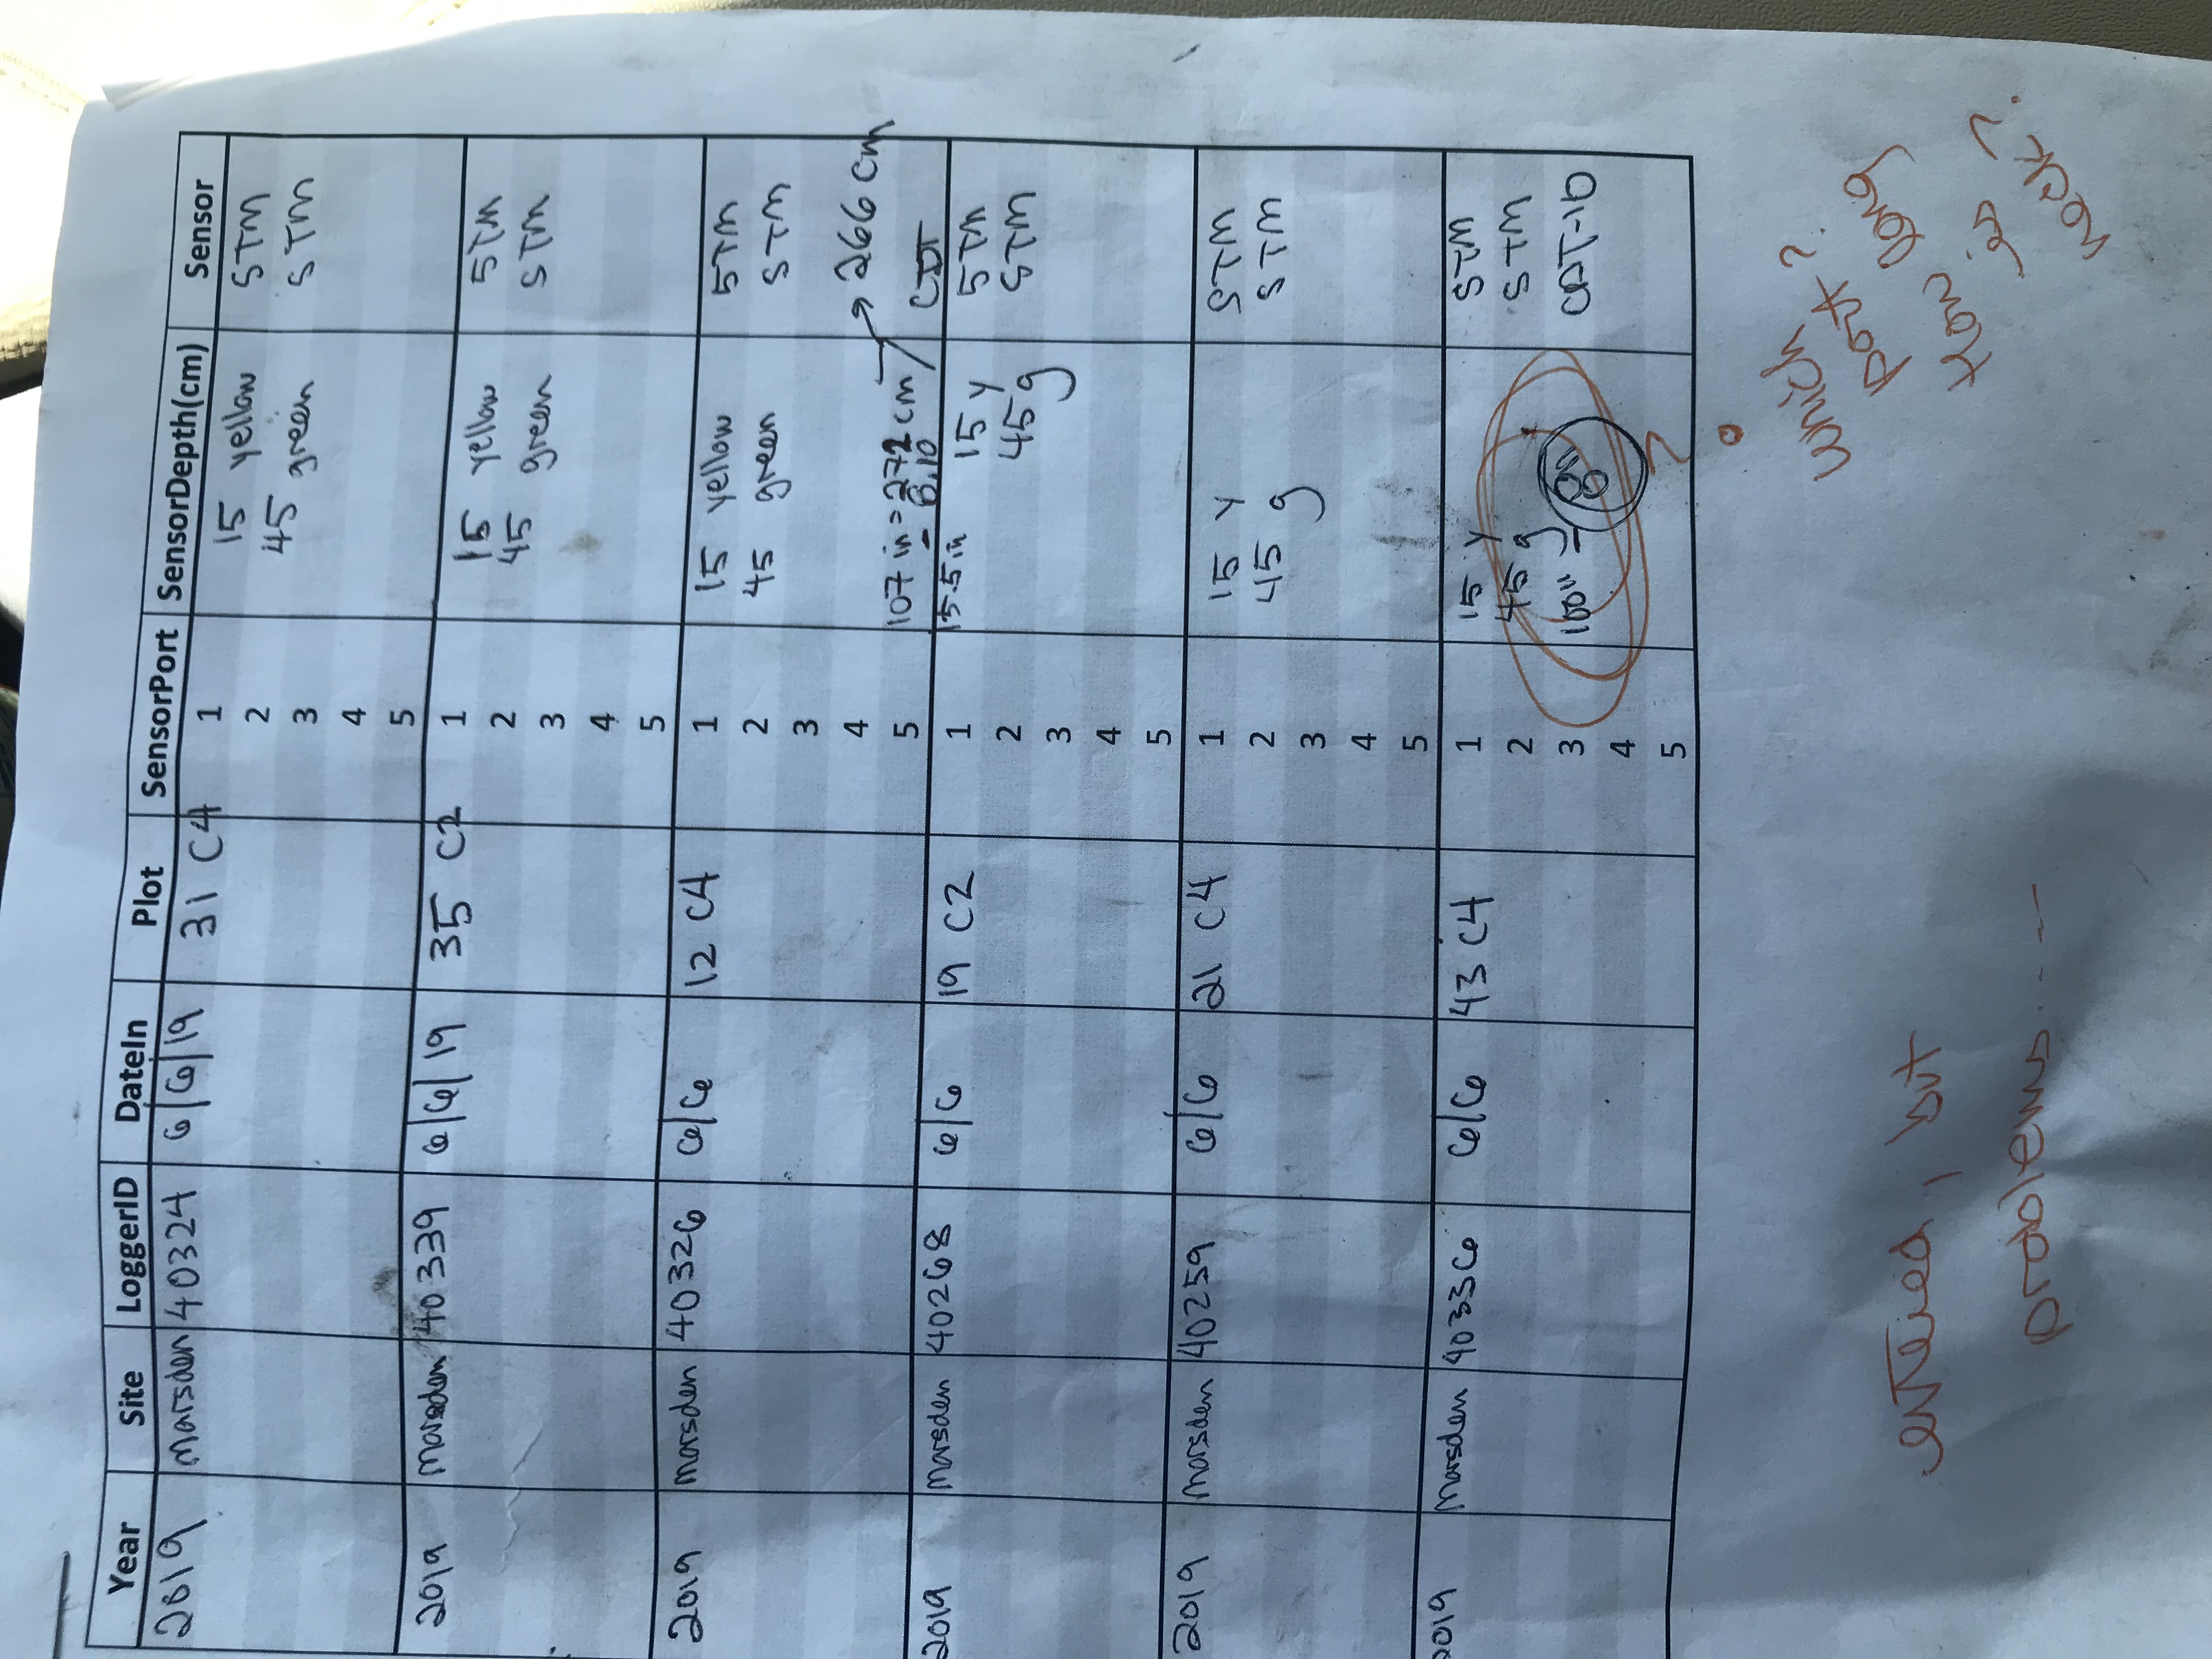 Year Site LoggerID DateIn Plot SensorPort SensorDepth(cm) Sensor
2019 Marsden 40324 6/6/19 31 C4 1 15 yellow 5TM
2 45 green 5TM
3
4
5
2019 Marsden 40339 6/6/19 35 C2 1 15 yellow 5TM
2 45 green 5TM
3
4
5
2019 Marsden 40326 6/6 12 C4 1 15 yellow 5TM
2 45 green 5TM
3
4 → 266 cm
5 107 in = 272 cm CDT
- 6.10
2019 Marsden 40268 6/6 19 C2 1 15.5 in 15 y 5TM
2 45 g 5TM
3
4
5
2019 Marsden 40259 6/6 21 C4 1 15 y 5TM
2 45 g 5TM
3
4
5
2019 Marsden 40336 6/6 43 C4 1 15 y 5TM
2 45 g 5TM
3 100" - CDT-10
4
5
?
which
port?
How long
is
neck?
entered, but
problems....--